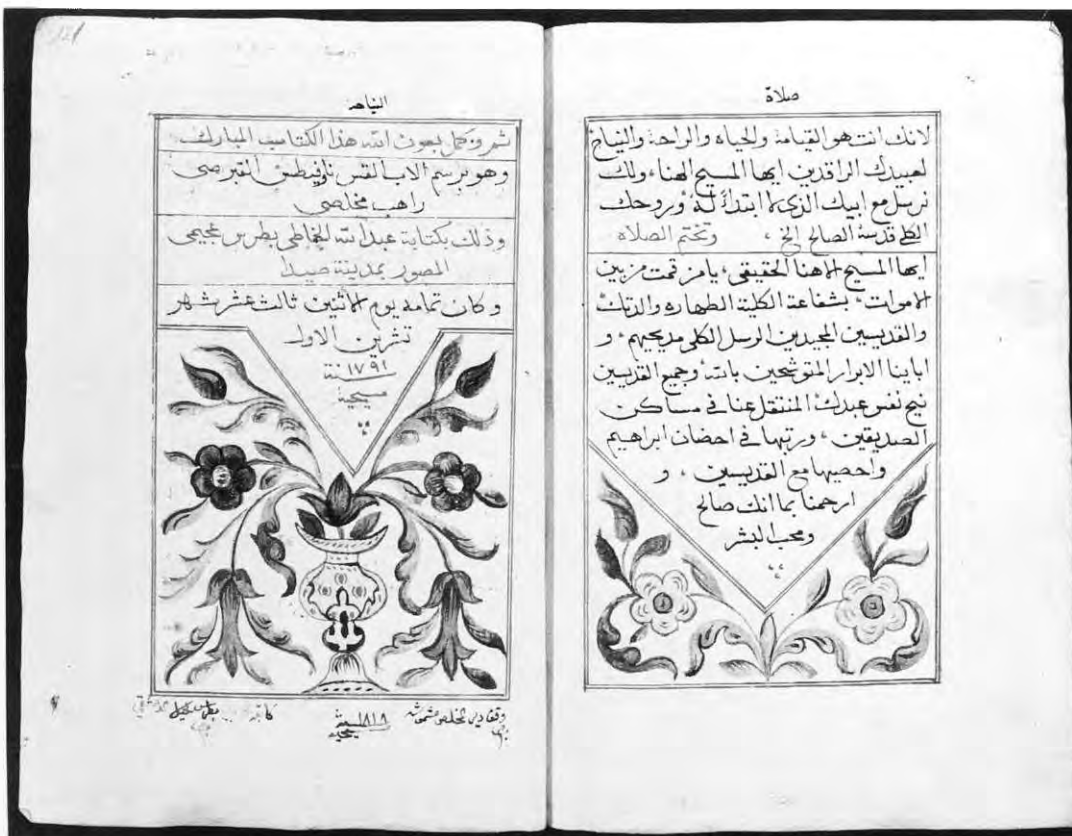 صلاة
لانك انت هو القيامة والحياه والراحة والنياح
لعبيدك الراقدين ايها المسيح الهنا، ولك
نرسل مع ابيك الذي لا ابتدأ له وروحك
الكلي قدسه الصالح الخ، وتختم الصلاه
ايها المسيح الاهنا الحقيقي، يا من قمت من بين
الاموات، بشفاعة الكلية الطهاره والدتك
والقديسين المجيدين الرسل الكلي مديحهم، و
اباينا الابرار المتوشحين بالله وجميع القديسين
نيح نفس عبدك المنتقل عنا في مساكن
الصديقين، ورتبها في احضان ابراهيم
واحصيها مع القديسين، و
ارحمنا بما انك صالح
ومحب البشر
النياحه
تم وكمل بعون الله هذا الكتاب المبارك
وهو برسم الاب القس القبرصي
راهب مخلصي
وذلك بكتابة عبد الله بطرس عجيمي
المصور بمدينة صيدا
وكان تمامه يوم الاثنين ثالث عشر شهر
تشرين الاول
سنة ١٧٩١
مسيحية
وقفا دير المخلص
سنة ١٨١٨
مسيحية
121